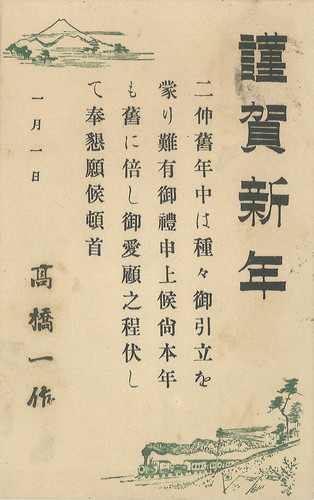 謹賀新年
二伸舊年中は種々御引立を
蒙り難有御禮申上候尙本年
も舊に倍し御愛顧之程伏し
て奉懇願候頓首
一月一日
高橋一作